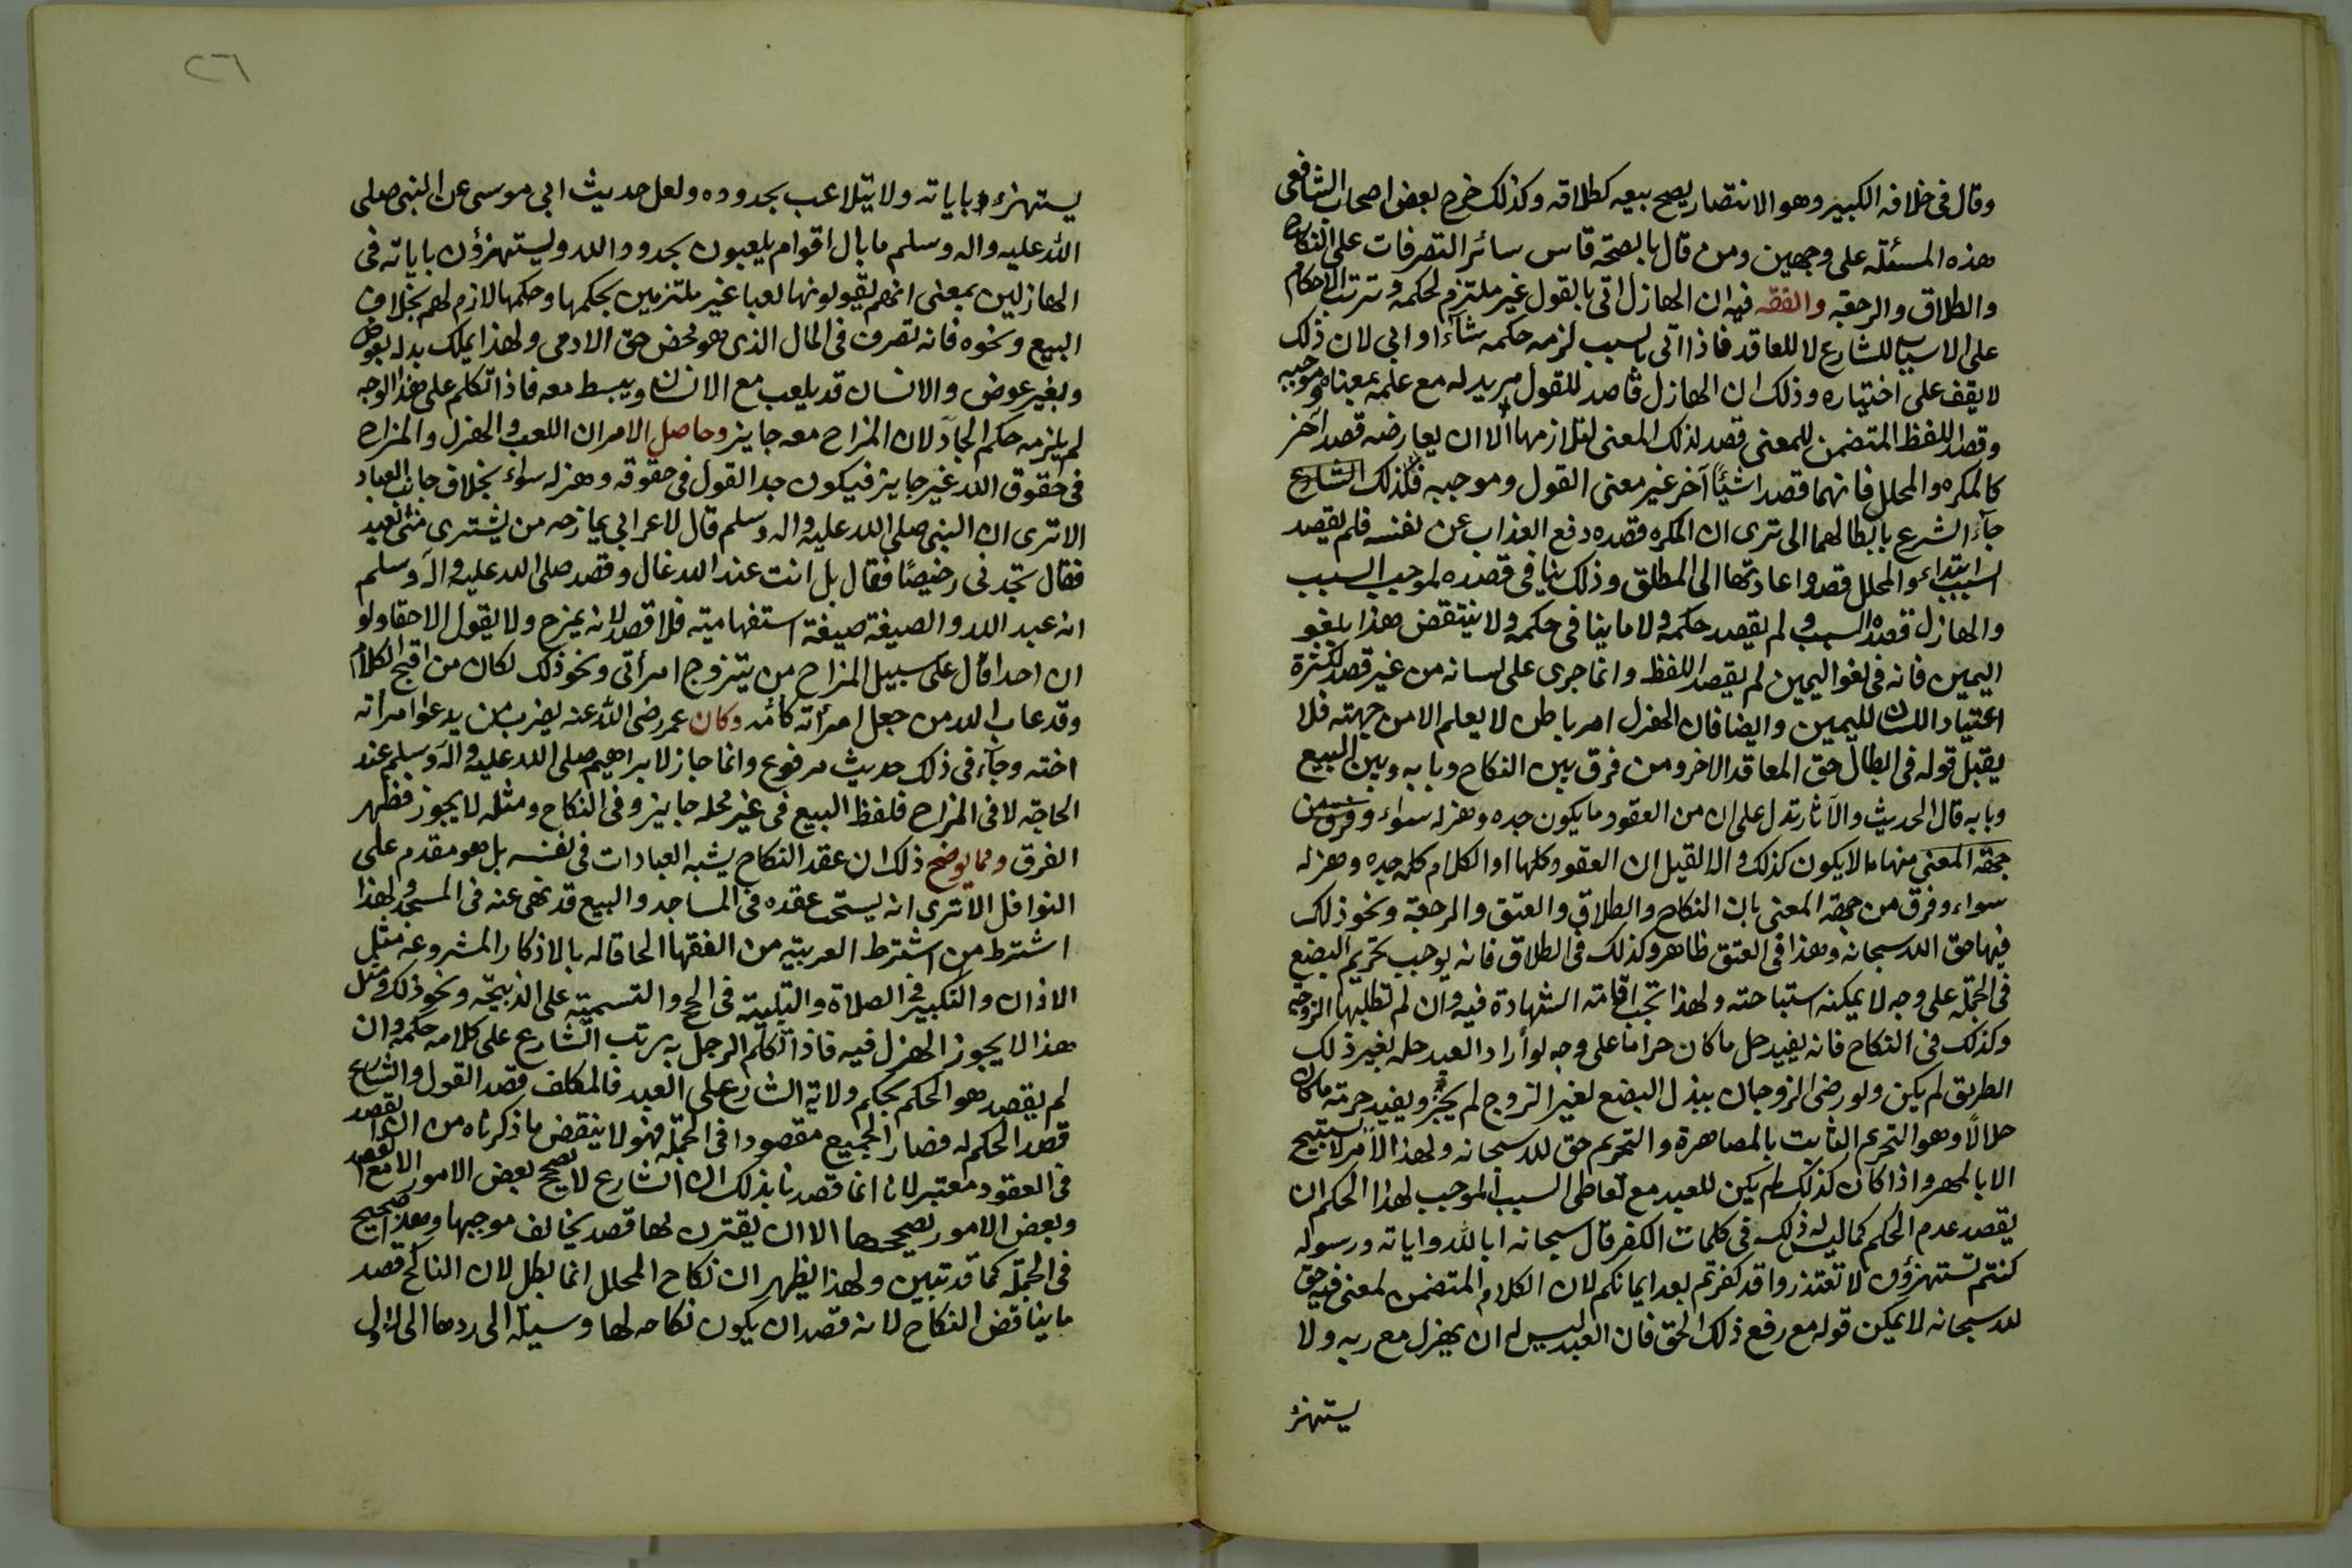 وقال في خلافه الكبير وهو الانتصار يصح بيعه كطلاقه وكذلك خرج بعض اصحاب الشافعي
هذه المسئلة على وجهين ومن قال بالصحة قاس سائر التصرفات على النكاح
والطلاق والرجعة والفقه فيه ان الهازل اتى بالقول غير ملتزم لحكمه وترتب الاحكام
على الاسباب للشارع لا للعاقد فاذا اتى بالسبب لزمه حكمه شآء او ابى لان ذلك
لا يقف على اختياره وذلك ان الهازل قاصد للقول مريد له مع علمه بمعناه وموجبه
وقصد اللفظ المتضمن للمعنى قصد لذلك المعنى لتلازمهما الا ان يعارضه قصد آخر
كالمكره والمحلل فانهما قصدا شيئًا آخر غير معنى القول وموجبه فلذلك الشارع
جآء الشرع بابطالهما الى ترى ان المكره قصده دفع العذاب عن نفسه فلم يقصد
السبب ابتداء والمحلل قصد اعادتها الى المطلق وذلك ينافي قصده لموجب السبب
والهازل قصده السبب ولم يقصد حكمه ولا ما ينافي حكمه ولا ينتقض هذا بلغو
اليمين فانه في لغو اليمين لم يقصد اللفظ وانما جرى على لسانه من غير قصد لكثرة
اعتياد اللسان لليمين وايضا فان الهزل امر باطن لا يعلم الا من جهته فلا
يقبل قوله في ابطال حق المعاقد الاخر ومن فرق بين النكاح وبابه وبين البيع
وبابه قال الحديث والآثار تدل على ان من العقود ما يكون جده وهزله سواء وفرق من
جهة المعنى منها ما لا يكون كذلك والا لقيل ان العقود كلها او الكلام كله جده وهزله
سواء وفرق من جهة المعنى بان النكاح والطلاق والعتق والرجعة ونحو ذلك
فيها حق الله سبحانه وهذا في العتق ظاهر وكذلك في الطلاق فانه يوجب تحريم البضع
في الجملة على وجه لا يمكنه استباحته ولهذا تجب اقامة الشهادة فيه وان لم تطلبها الزوجة
وكذلك في النكاح فانه يفيد حل ما كان حراما على وجه لو أراد العبد حله بغير ذلك
الطريق لم يكن ولو رضى الزوجان ببذل البضع لغير الزوج لم يجز ويفيد حرمة ما كان
حلالًا وهو التحريم الثابت بالمصاهرة والتحريم حق لله سبحانه ولهذا الأمر لا يستبيح
الا بالمهر واذا كان كذلك لم يكن للعبد مع تعاطي السبب الموجب لهذا الحكم ان
يقصد عدم الحكم كما ليس له ذلك في كلمات الكفر قال سبحانه ابالله واياته ورسوله
كنتم تستهزؤن لا تعتذروا قد كفرتم بعد ايمانكم لان الكلام المتضمن لمعنى فيه حق
لله سبحانه لا يمكن قوله مع رفع ذلك الحق فان العبد ليس له ان يهزل مع ربه ولا
يستهزئ
٢٦
يستهزء باياته ولا يتلاعب بحدوده ولعل حديث ابي موسى عن النبي صلى
الله عليه واله وسلم ما بال اقوام يلعبون بحدود الله ويستهزؤن باياته في
الهازلين بمعنى انهم يقولونها لعبا غير ملتزمين بحكمها وحكمها لازم لهم بخلاف
البيع ونحوه فانه تصرف في المال الذي هو محض حق الادمي ولهذا يملك بدله بعوض
وبغير عوض والانسان قد يلعب مع الانسان ويبسط معه فاذا تكلم على هذا الوجه
لم يلزمه حكم الجآد لان المزاح معه جايز وحاصل الامر ان اللعب والهزل والمزاح
في حقوق الله غير جايز فيكون جد القول في حقوقه وهزله سواء بخلاف جانب العباد
الا ترى ان النبي صلى الله عليه واله وسلم قال لاعرابي يمازحه من يشترى منى العبد
فقال تجدني رخيصًا فقال بل انت عند الله غال وقصد صلى الله عليه وآله وسلم
انه عبد الله والصيغة صيغة استفهامية فلا قصد لانه يمزح ولا يقول الا حقا ولو
ان احدا قال على سبيل المزاح من يتزوج امرأتي ونحو ذلك لكان من اقبح الكلام
وقد عاب الله من جعل امرأته كأمه وكان عمر رضى الله عنه يضرب من يدعوا امرأته
اخته وجآء في ذلك حديث مرفوع وانما جاز لابراهيم صلى الله عليه وآله وسلم عند
الحاجة لا في المزاح فلفظ البيع في غير محله جايز وفي النكاح ومثله لا يجوز فظهر
الفرق ومما يوضح ذلك ان عقد النكاح يشبه العبادات في نفسه بل هو مقدم على
النوافل الا ترى انه يستحب عقده في المساجد والبيع قد نهى عنه في المسجد ولهذا
اشترط من اشترط العربية من الفقها الحاقا له بالاذكار المشروعه مثل
الاذان والتكبير في الصلاة والتلبية في الحج والتسمية على الذبيحة ونحو ذلك ومثل
هذا لا يجوز الهزل فيه فاذا تكلم الرجل به رتب الشارع على كلامه حكمه وان
لم يقصد هو الحكم بحكم ولاية الشارع على العبد فالمكلف قصد القول والشارع
قصد الحكم له فصار الجميع مقصودا في الجملة فهو لا ينقض ما ذكرناه من ان القصد
في العقود معتبر لانا انما قصدنا بذلك ان الشارع لا يصحح بعض الامور الا مع القصد
وبعض الامور يصححها الا ان يقترن لها قصد يخالف موجبها وهذا صحيح
في الجملة كما قد تبين ولهذا يظهر ان نكاح المحلل انما بطل لان الناكح قصد
ما يناقض النكاح لانه قصد ان يكون نكاحه لها وسيلة الى ردها الى الاول